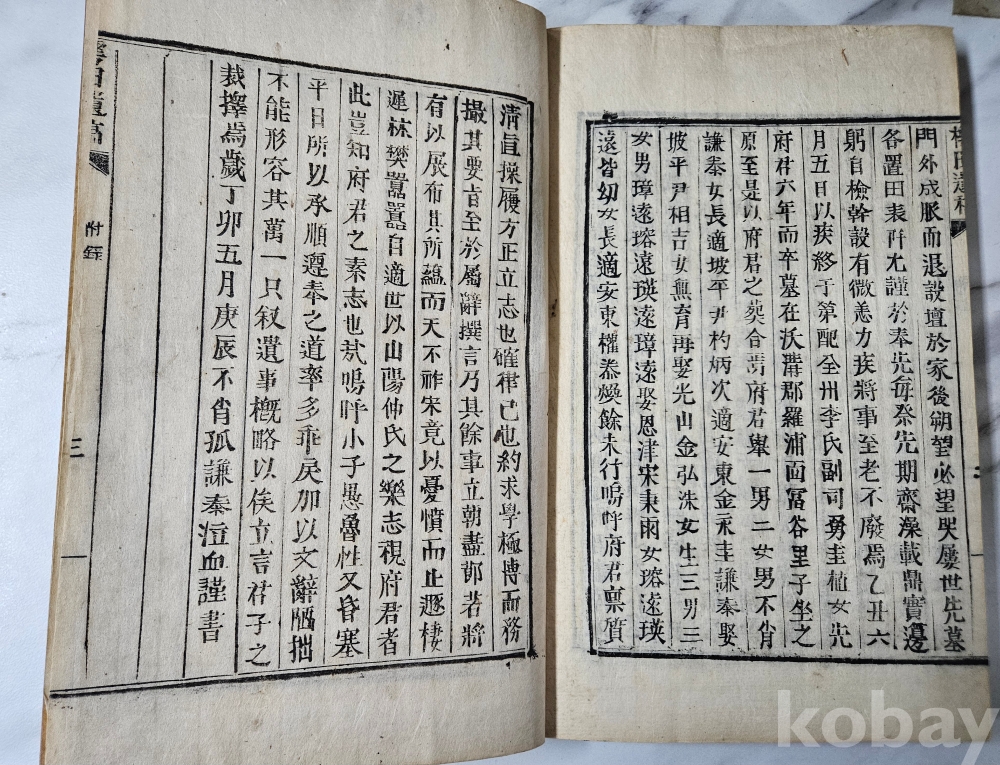 田遺稿
門外成服而退設壇於家後朔望必望哭屢世先墓
各置田表阡尤謹於奉先每祭先期齋澡載鼎實籩
躬自檢幹設有微恙力疾將事至老不廢焉乙丑六
月五日以疾終于第配全州李氏副司勇圭植女先
府君六年而卒墓在沃溝郡羅浦面冨谷里子坐之
原至是以府君之葬合焉府君擧一男二女男不肖
謙秦女長適坡平尹杓炳次適安東金永圭謙秦娶
坡平尹相吉女無育再娶光山金弘洙女生三男三
女男璋遠瑢遠瑛遠璋遠娶恩津宋秉雨女瑢遠瑛
遠皆幼女長適安東權泰煥餘未行嗚呼府君稟質
清直操履方正立志也確律己也約求學極博而務
撮其要旨至於屬辭撰言乃其餘事立朝盡鄧若將
有以展布其所蘊而天不祚宋竟以憂憤而止遯棲
遲林樊囂囂自適世以山陽仲氏之樂志視府君者
此豈知府君之素志也㢤嗚呼小子愚魯性又昏塞
平日所以承順遵奉之道率多乖戾加以文辭陋拙
不能形容其萬一只叙遺事槪略以俟立言君子之
裁擇焉歲丁卯五月庚辰不肖孤謙秦泣血謹書
田遺稿
附錄
三
kobay